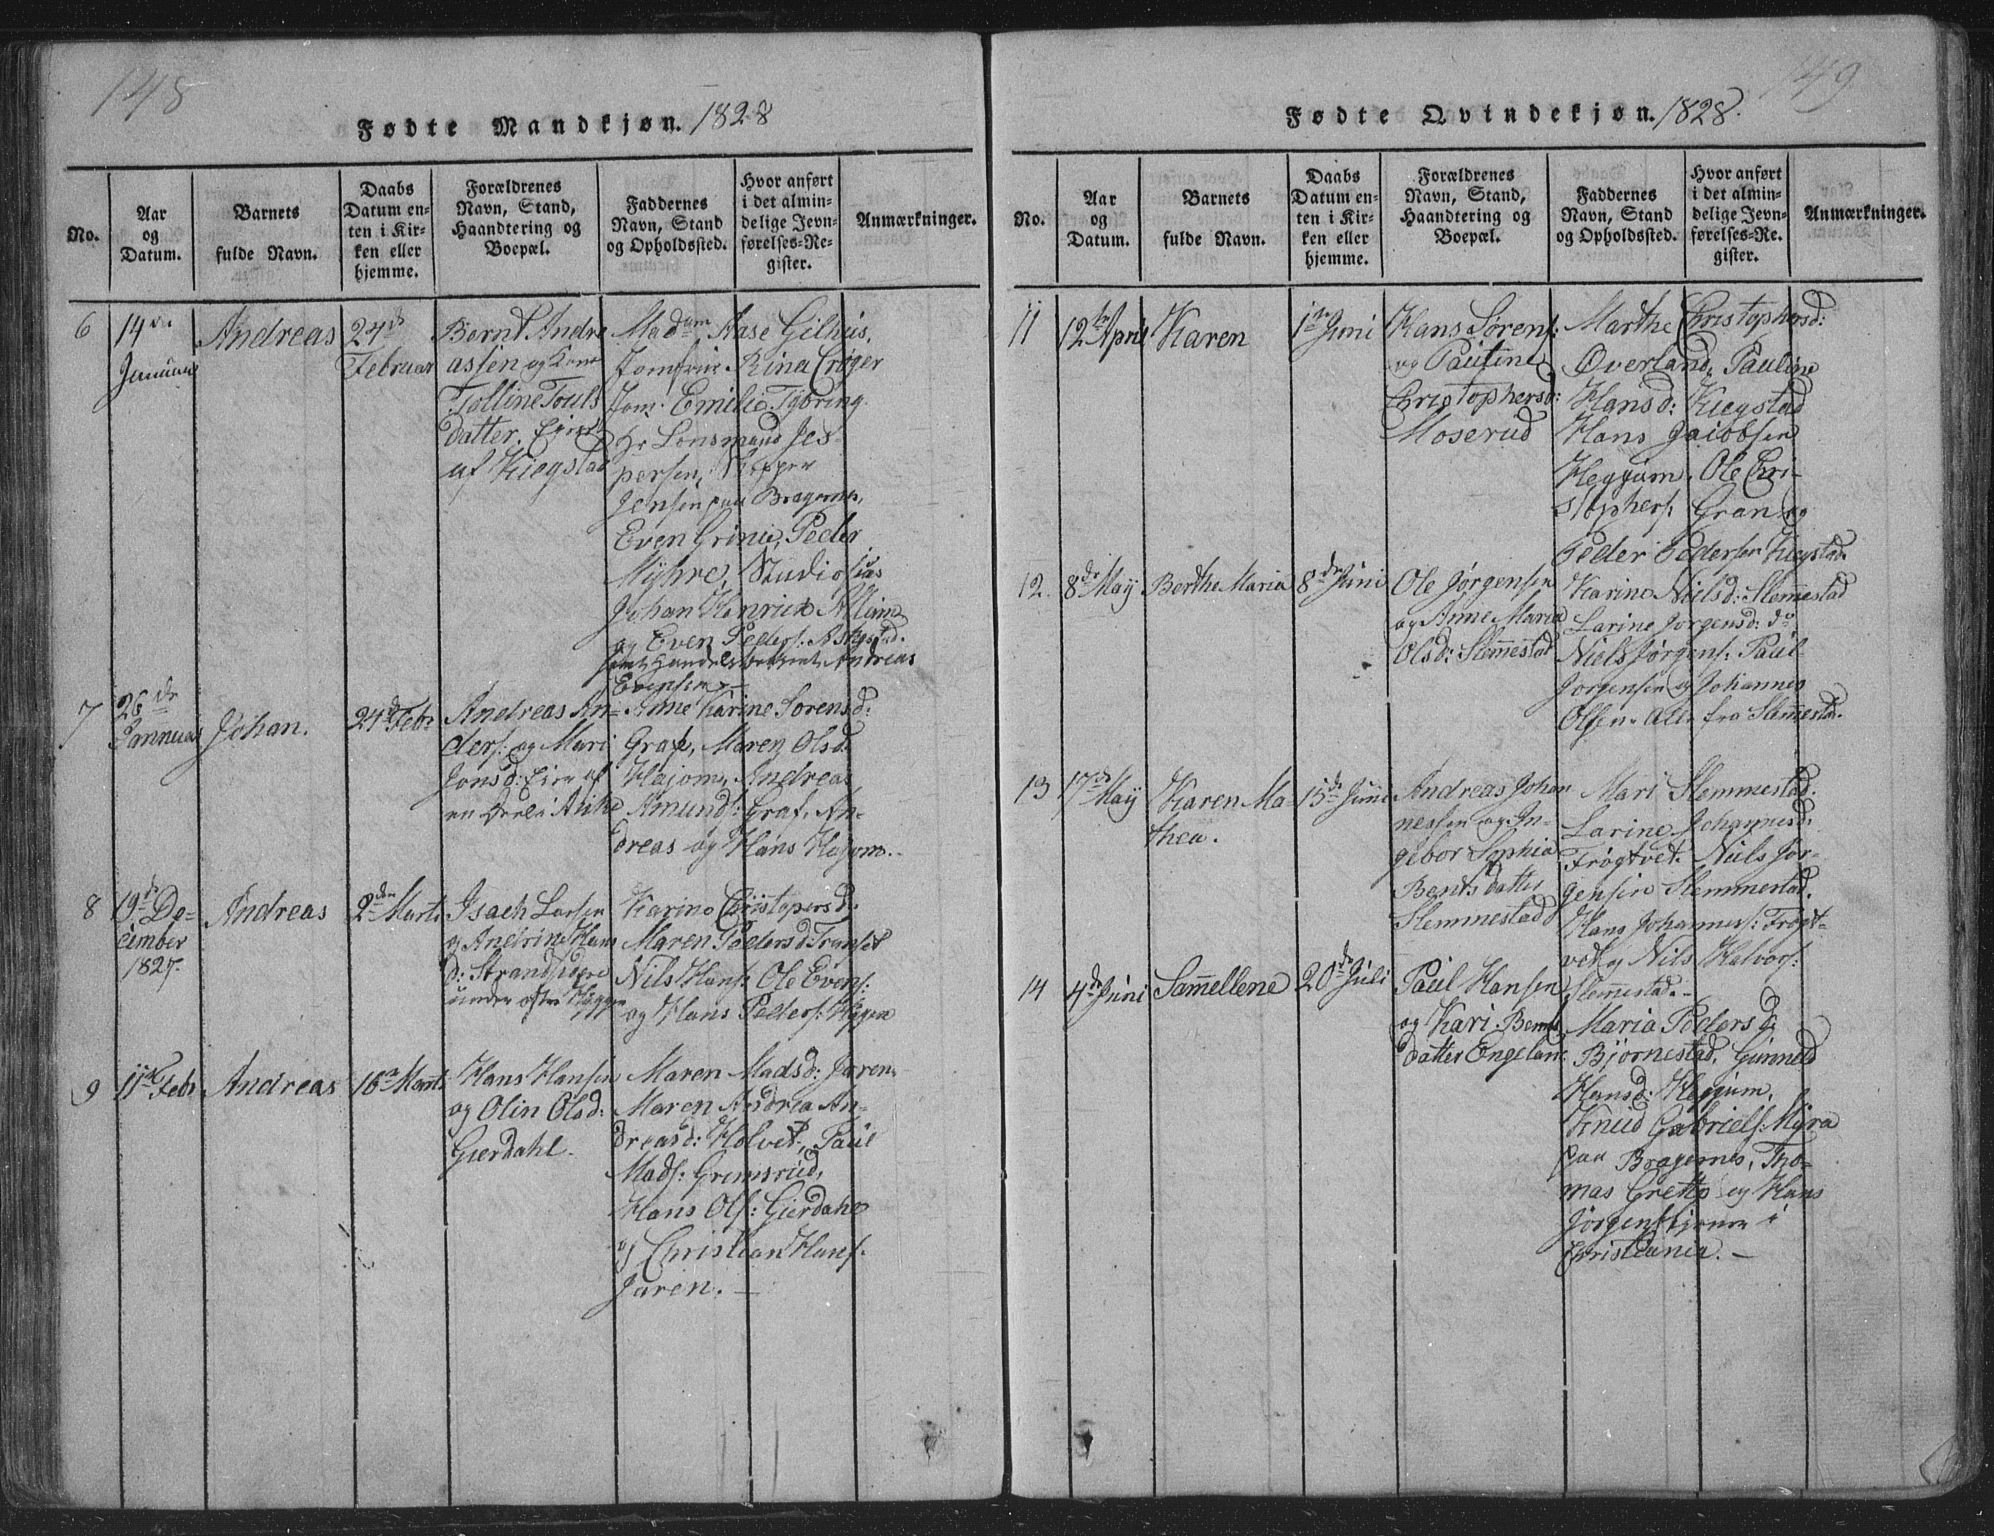 148
Fødte Mandkjøn. 1828
No.
Aar
og
Datum.
Barnets
fulde Navn.
Daabs
Datum en-
ten i Kir-
ken eller
hjemme.
Forældrenes
Navn, Stand,
Haandtering og
Boepæl.
Faddernes
Navn, Stand
og Opholdssted.
Hvor anført
i det almin-
delige Jevn-
førelses-Re-
gister.
Anmærkninger.
6
14de
Januar
Andreas
24de
Februar
Bernt Andre
assen og Kone
Talline Pouls
datter,
af Kiegstad
Madam Aase Gilhus,
Jomfrue Rina Crøger
Jom. Emilie Tybring
Hr Lensmand Jes-
persen, Skipper
Jensen paa Bragernes,
Even Grine, Peder
Myhre, Studiosus
Johan Henrich
og Even Peders: Askestad.
samt Handelsbetjent Andreas
Evensen
7
26de
Januar
Johan.
24d Febr
Andreas An-
ders: og Mari
Jonsd: Eiere af
en Deel i
Anne Karine Sorensd:
Graf, Maren Olsd.
Hajom, Andreas
Amunds: Graf, An-
dreas og Hans Hajom.
8
19de De-
cember
1827.
Andreas
2den Marts
Isach Larsen
og Andrine Hans
d: Strandsidere
under østre Høggen
Karine Christopersd.
Maren Pedersd Transet
Nils Hans: Ole Evens:
og Hans Peders: Høgen
9
11te Febr
Andreas
16de Marts
Hans Hansen
og Olin Olsd:
Gierdahl.
Maren Madsd: Jaren
Maren Andrea An-
dreasd: Holvet, Paul
Mads: Gremsrud,
Hans Ols: Gierdahl
og Christian Hans:
Jaren.
149
Fødte Qvindekjøn. 1828.
No.
Aar
og
Datum.
Barnets
fulde Navn.
Daabs
Datum en-
ten i Kir-
ken eller
hjemme.
Forældrenes
Navn, Stand,
Haandtering og
Boepæl.
Faddernes
Navn, Stand
og Opholdssted.
Hvor anført
i det almin-
delige Jevn-
førelses-Re-
gister.
Anmærkninger.
11
12te April
Karen
1ste Juni
Hans Sørens:
og Pauline
Christophersd:
Moserud
Marthe Christophersd:
Overland, Pauline
Hansd: Kiegstad
Hans Jacobsen
Heggum, Ole Chri-
stophers: Gran og
Peder Pedersen Kiegstad.
12.
8de May
Berthe Maria
8de Juni
Ole Jørgensen
og Anne Maria
Olsd: Slemestad
Karine Nielsd: Slemestad
Larine Jørgensd: do
Niels Jørgens: Paul
Jørgensen og Johannes
Olsen. Alle fra Slemestad.
13
17de May
Karen Ma
thea.
15de Juni
Andreas Johan
nessen og In-
gebor Sophia
Bentsdatter
Slemmestad
Mari Slemmestad.
Larine Johannesd:
Frøgtvet. Niels Jør-
gensen Slemmestad.
Hans Johanness: Frøgt-
vet og Nils Halvors:
Slemestad.
14
4de Juni
Samellene
20de Juli
Paul Hansen
og Kari Bernts
datter Engelan
Maria Pedersd:
Bjørnestad, Gunneld
Hansd: Heggum,
Knud Gabriels: Myra
paa Bragernes, Tho-
mas Gretto og Hans
Jørgens tjener i
Christiania.